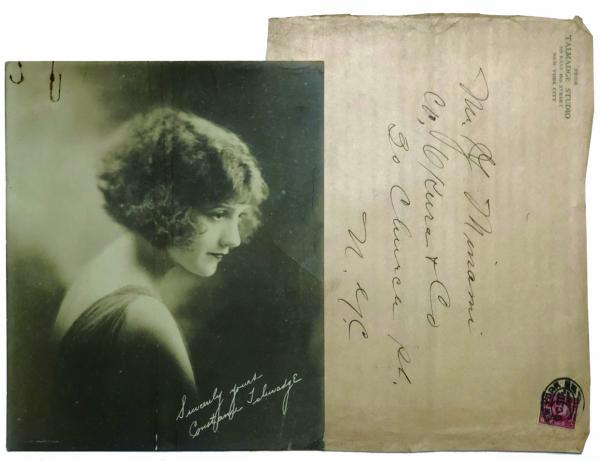 Sincerely yours
Constance Talmadge
FROM
TALMADGE STUDIO
NEW YORK CITY
Mr. Y Minami
c/o, Okura & Co
30 Church St.
N.Y.C